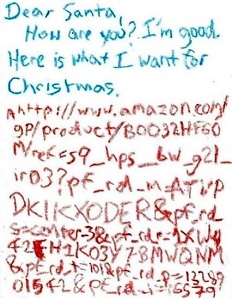 Dear Santa,
How are you? I'm good.
Here is what I want for
Christmas.
http://www.amazon.com/
gp/product/B0032HF60
M/ref=s9_hps_bw_g21_
ir03?pf_rd_m=ATVP
DKIKX0DER&pf_rd_
s=center-3&pf_rd_r=1XWV
&pf_rd_t=101&pf_rd_p=